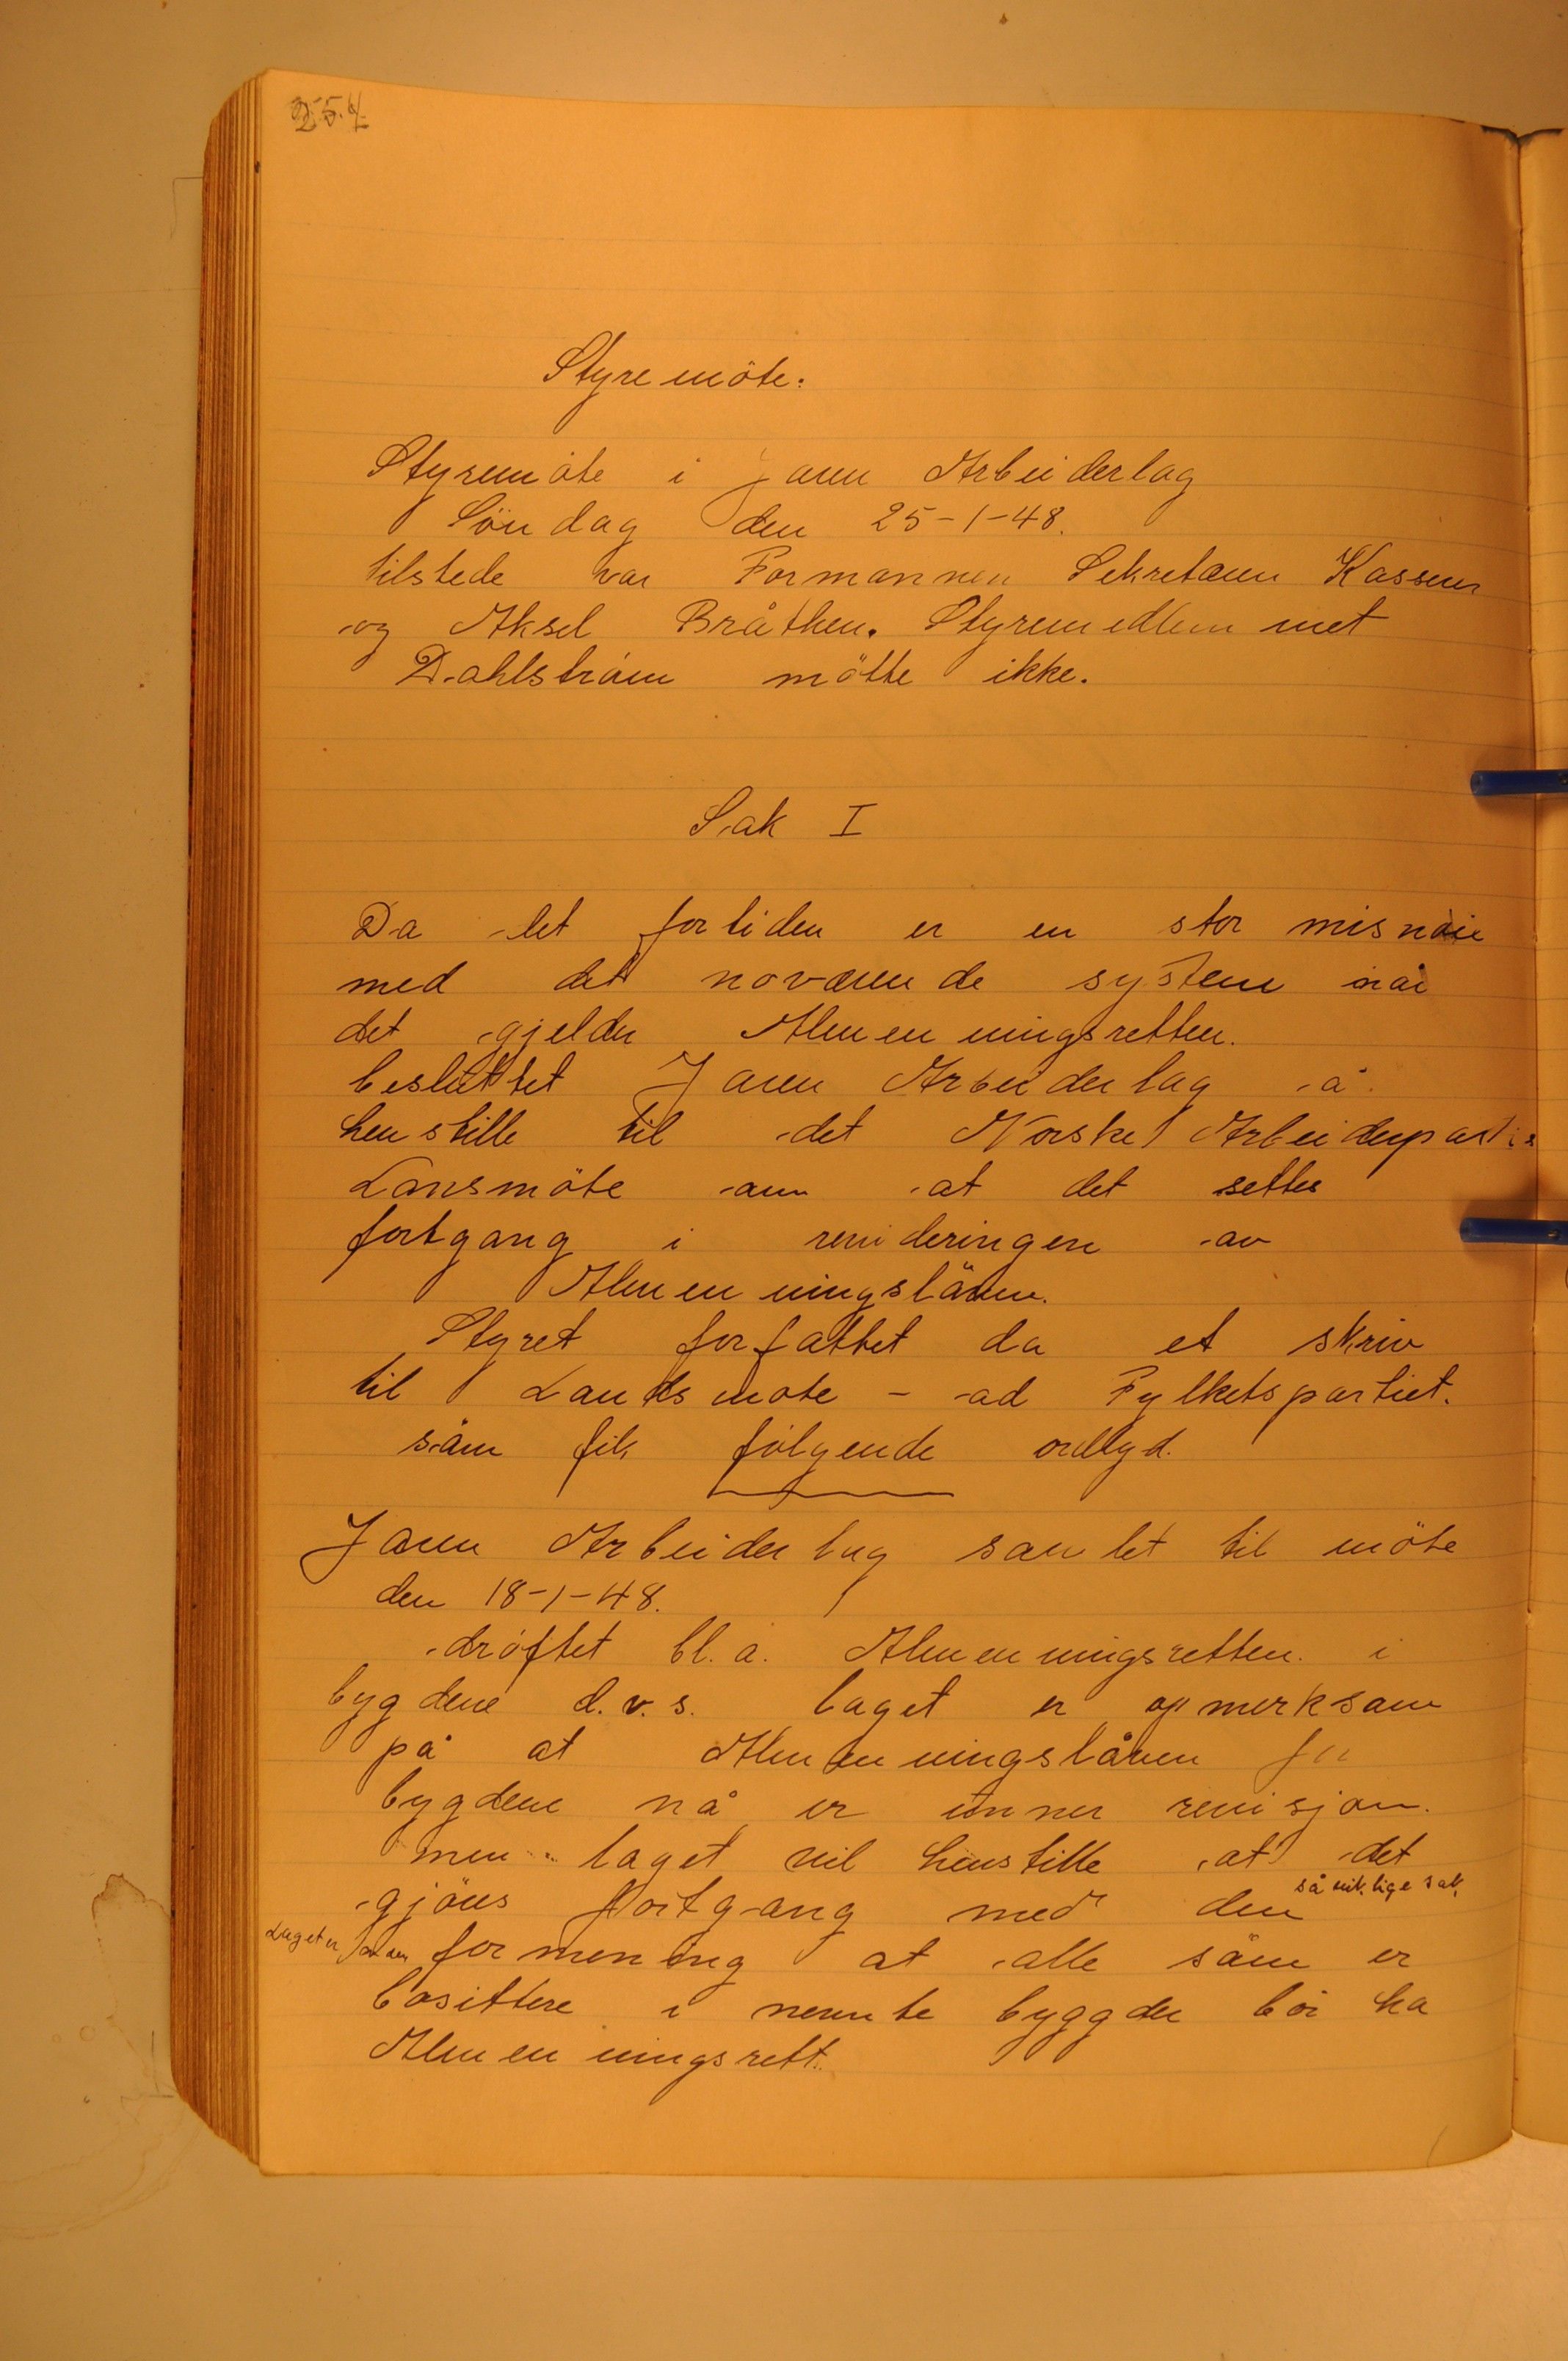 254
Styremöte.
Styremöte i Jaren Arbeiderlag
Söndag den 25-1-48.
tilstede var Formannen Sekretæren Kasseren
og Aksel Bråthen. Styremedlemmet
Dahlström mötte ikke.
Sak I
Da det fortiden er en stor misnöie
med det noværende system når
det gjelder Almenningsretten.
besluttet Jaren Arbeiderlag å
henstille til det Norske Arbeiderpartis
Lansmöte om at det settes
fortgang i revideringen av
Almenningslåven.
Styret forfattet da et skriv
til Landsmöte - ad Fylketspartiet.
såm fik fölgende ordlyd.
Jaren Arbeiderlag samlet til möte
den 18-1-48.
dröftet bl.a. Almenningsretten i
bygdene d.v.s. laget er opmerksam
på at Almenningslåven for
bygdene nå er unner revisjon.
men laget vil henstille at det
gjöres fortgang med den så viktige sak.
Laget er av den formening at alle såm er
bosittere i nevnte byggder bör ha
Almenningsrett.